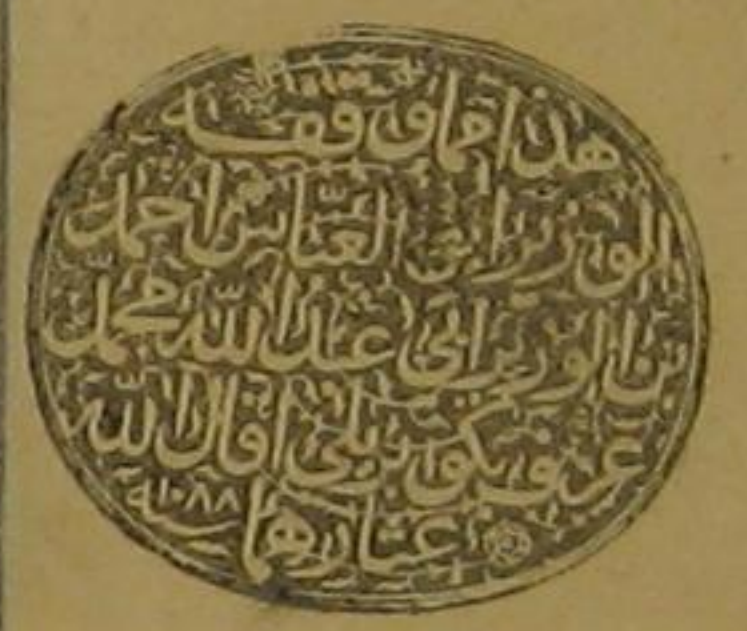 هذا مما وقفه
الوزير ابو العباس احمد
بن الوزير ابي عبد الله محمد
عرف بكوپريلى اقال الله
عثارهما سنه ١٠٨٨